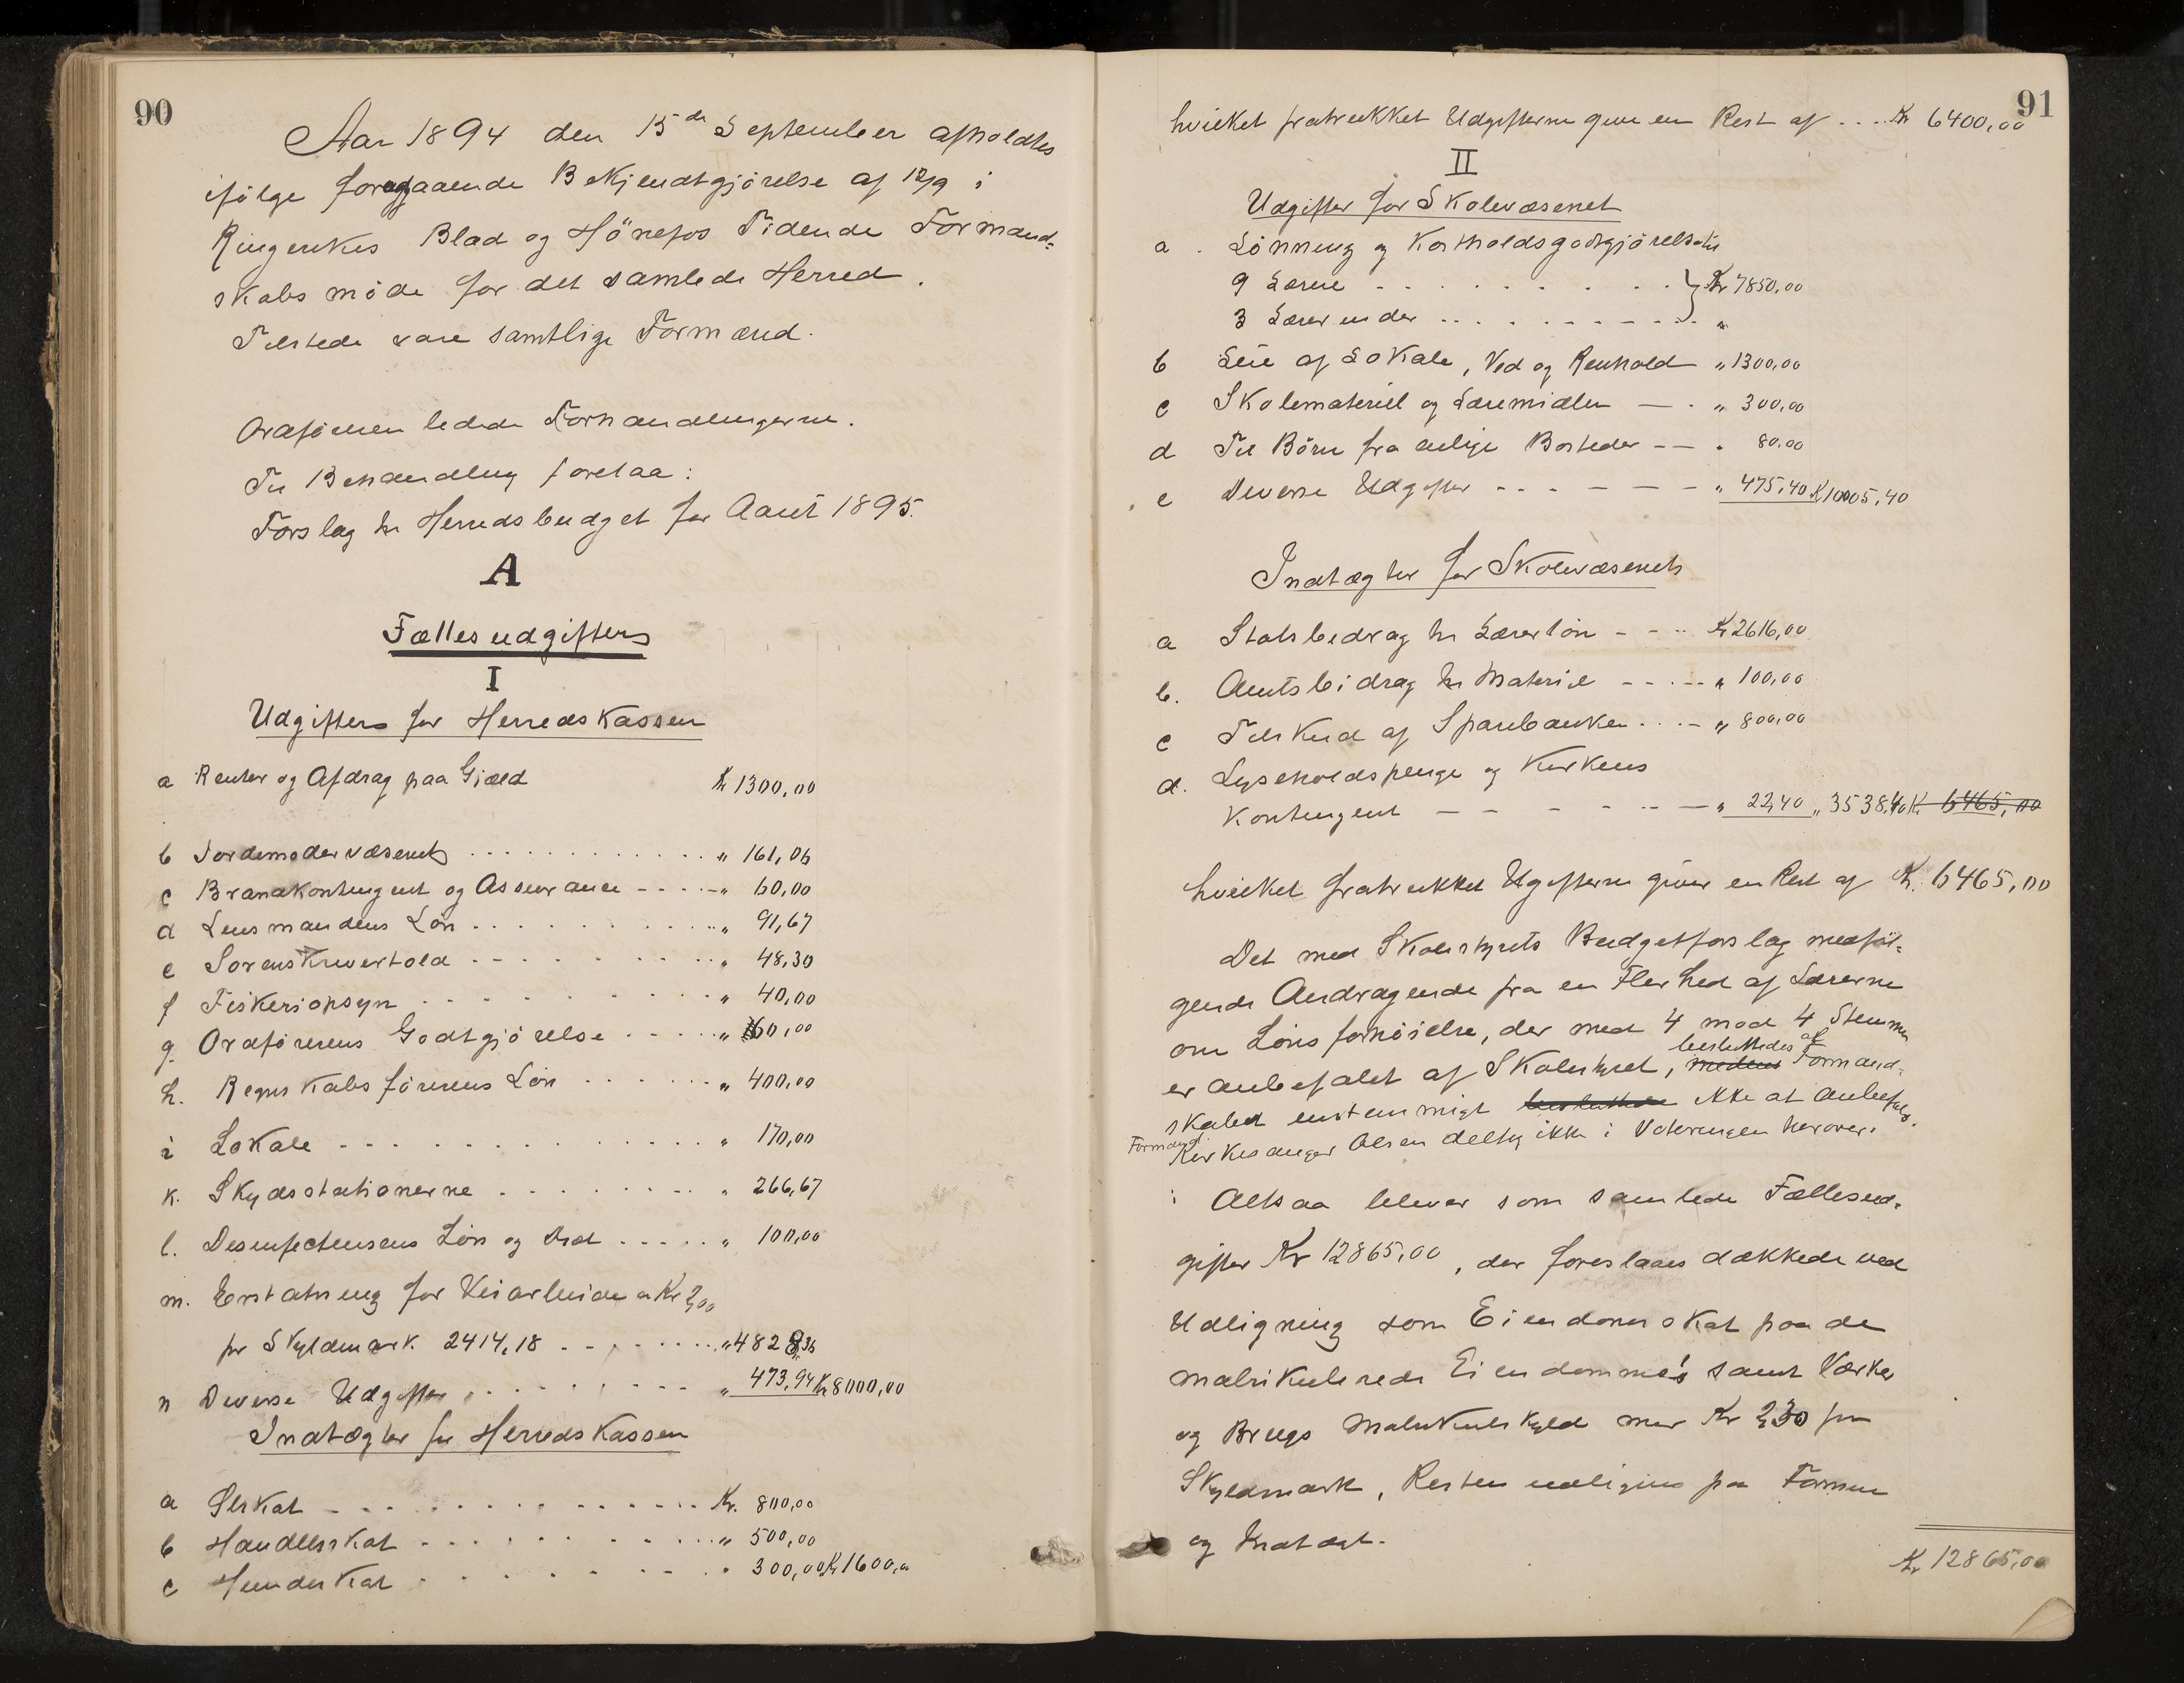 90
Aar 1894 den 15de September afholdtes
ifölge foregaaende Bekjendtgjörelse af 12/9 i
Ringerikes Blad og Hönefos Tidende Formand-
skabsmöde for det samlede Herred.
Tilstede vare samtlige Formænd.
Ordföreren ledede Forhandlingerne.
Til Behandling foretaa:
Forslag til Herredsbudget for Aaret 1895.
A
Fællesudgifter
I
Udgifter for Herredskassen
a Renter og Afdrag paa Gjæld Kr 1300,00
b Jordemodervæsenet " 161,06
c Brandkontingent og Assurance " 60,00
d Lensmandens Lön " 91,67
e Sorenskrivertold " 48,30
f Fiskeriopsyn " 40,00
g. Ordförerens Godtgjörelse " 60,00
h. Regnskabsförerens Lön " 400,00
i Lokale " 170,00
k. Skydsstationerne " 266,67
l. Desinfecteurens Lön og Udst " 100,00
m. Erstatning for Veiarbeide a Kr 2,00
pr Skyldmark. 2414,18 " 4828,36
n Diverse Udgifter " 473,94 Kr 8000,00
Indtægter for Herredskassen
a Ölskat Kr. 800,00
b Handelsskat " 500,00
c Hundeskat " 300,00 Kr 1600,00
91
hvilket fratrukket Udgifterne giver en Rest af Kr 6400,00
II
Udgifter for Skolevæsenet
a. Lönning og Kostholdsgodtgjörelse til
9 Lærere } Kr 7850,00
3 Lærerinder "
b Leie af Lokale, Ved og Renhold " 1300,00
c Skolemateriel og Læremidler " 300,00
d Til Börn fra enlige Bosteder " 80,00
e Diverse Udgifter " 475,40 Kr 10005,40
Indtægter for Skolevæsenet
a Statsbidrag til Lærerlön Kr 2616,00
b. Amtsbidrag til Materiel " 100,00
c Tilskud af Sparebanken " 800,00
d. Lyseholdspenge og Kirkens
Kontingent " 22,40 " 3538,40 Kr 6465,00
hvilket fratrukket Ugifterne giver en Rest af Kr. 6465,00
Det med Skolestyrets Budgetforslag medföl-
gende Andragende fra en Flerhed af Lærerne
om Lönsforhöielse, der med 4 mod 4 Stemmer
er anbefalet af Skolestyret, medens besluttedes af Formand-
skabet enstemmigt besluttede ikke at anbefale.
Formand Kirkesanger Olsen deltog ikke i Voteringen herover.
Altsaa bliver som samlede Fællesud-
gifter Kr 12865,00, der foreslaaes dækkede ved
Udligning som Eiendomsskat paa de
matrikulerede Eiendomme's samt Værker
og Brugs Matrikulskyld med Kr 2,30 pr
Skyldmark, Resten udlignes paa Formue
og Indtægt.
Kr 12865,00